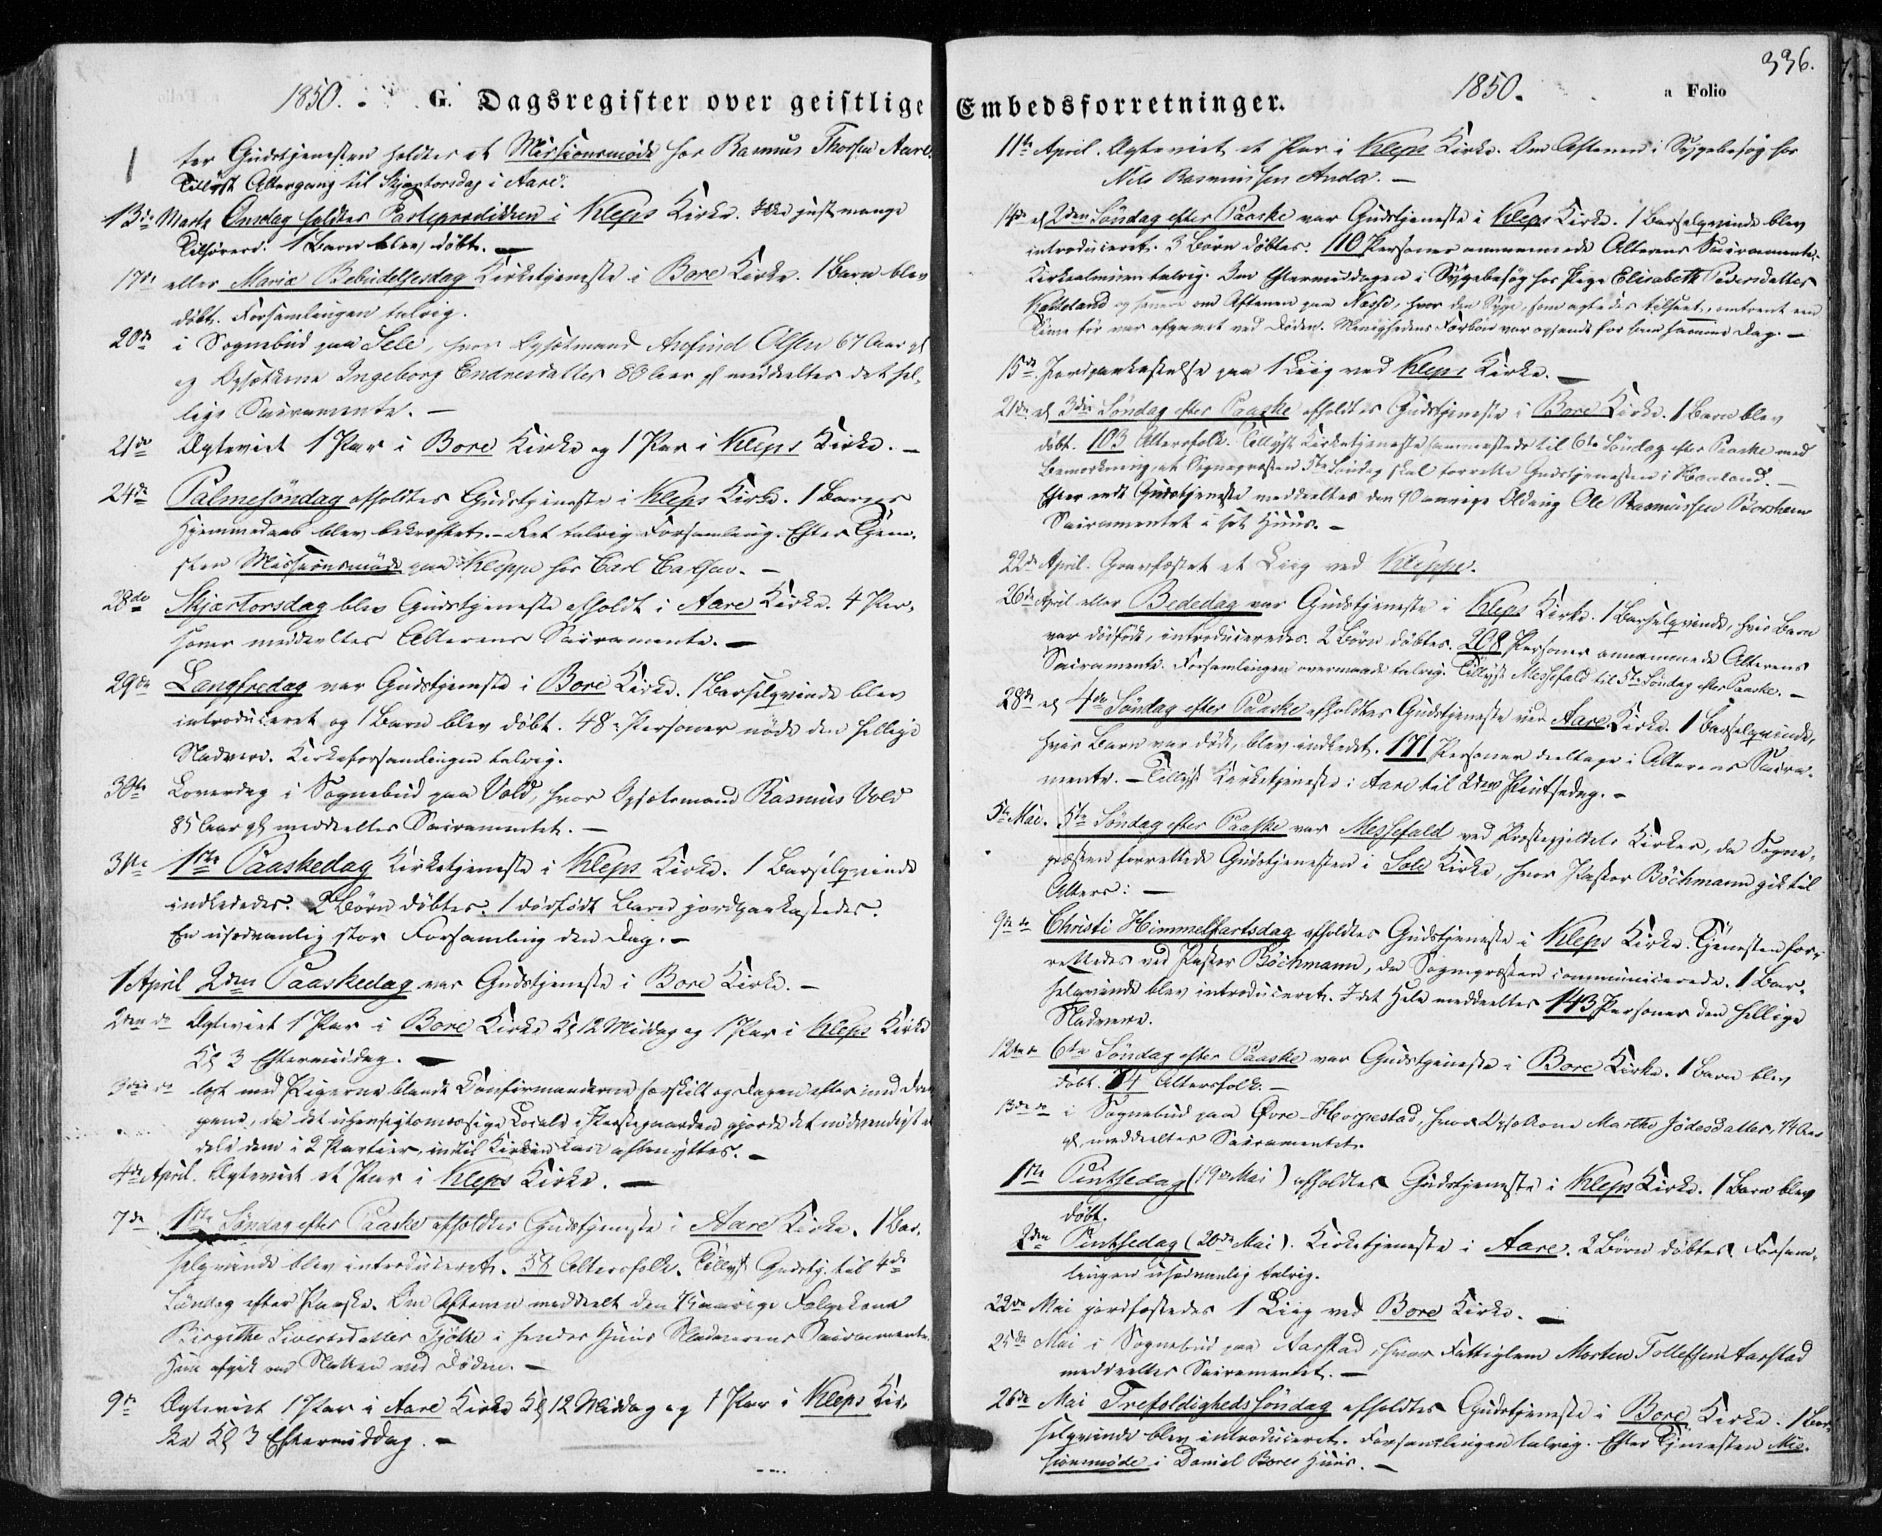 1850. G. Dagsregister over geistlige
ter Gudstjenesten holdtes et Missionsmøde hos Rasmus Thorsen Aare.
Tillyst Altergang til Skjærtorsdag i Aare.
13de Marts Onsdag holdtes Fasteprædiken i Kleps Kirke. Ikke just mange
Tilhørere. 1 Barn blev døbt. —
17de eller Mariæ Bebudelsesdag Kirketjeneste i Bore Kirke. 1 Barn blev
døbt. Forsamlingen talrig.
20de i Sognebud paa Sele, hvor Opsætmand Arefind Olsen 67 Aar gl
og Opsætkone Ingeborg Endresdatter 80 Aar gl meddeeltes det hel-
lige Sacramente. —
21de Ægteviet 1 Par i Bore Kirke og 1 Par i Kleps Kirke. —
24de Palmesöndag afholdtes Gudstjeneste i Kleps Kirke. 1 Barns
Hjemmedaab blev bekræftet. – Ret talrig Forsamling. Efter Tjene-
sten Missionsmøde paa Kleppe hos Carl —
28de Skjærtorsdag blev Gudstjeneste afholdt i Aare Kirke. 4 Per-
soner meddeeltes Alterens Sacramente. —
29de Langfredag var Gudstjeneste i Bore Kirke. 1 Barselqvinde blev
introduceret og 1 Barn blev døbt. 48 Personer nøde den hellige
Nadvere. Kirkeforsamlingen talrig.
30te Løverdag i Sognebud paa Vold, hvor Opsætmand Rasmus Vold
85 Aar gl meddeeltes Sacramentet. —
31te 1ste Paaskedag Kirketjeneste i Kleps Kirke. 1 Barselqvinde
indlededes. 2 Börn döbtes. 1 dødfødt Barn jordpaakastedes.
En usædvanlig stor Forsamling den Dag. —
1 April 2den Paaskedag var Gudstjeneste i Bore Kirke. —
2den do Ægteviet 1 Par i Bore Kirke Kl 12 Middag og 1 Par i Kleps Kirke
Kl 3 Eftermiddag. —
3die do læst med Pigerne blandt Confirmanderne særskilt og Dagen efter med Dren
gene, da det uhensigtsmæssige Locale i Præstegaarden gjorde det nødvendigt a
dele dem i 2 Partier, indtil Kirken kan afbenyttes. —
4de April. Ægteviet et Par i Kleps Kirke. —
7de 1ste Søndag efter Paaske afholdtes Gudstjeneste i Aare Kirke. 1 Bar-
selqvinde blev introduceret. 58 Altersfolk. Tillyst Gudstj. til 4de
Søndag efter Paaske. Om Aftenen meddeelt den aarige Føljekone
Birgithe Sivertsdatter Tjötte i hendes Huus Nadverens Sacramente.
Hun afgik om Natten ved Døden. —
9de Ægteviet 1 Par i Aare Kirke Kl 12 Middag og 1 Par i Kleps Kir-
ke Kl 3 Eftermiddag. —
336.
Embedsforretninger. 1850. a Folio
11te April. Ægteviet et Par i Kleps Kirke. Om Aftenen i Sygebesøg hos
Nils Rasmussen Anda. —
14de el 2den Søndag efter Paaske var Gudstjeneste i Kleps Kirke. 1 Barselqvinde blev
introduceret. 3 Børn døbtes. 110 Personer annammede Alterens Sacramente.
Kirkealmuen talrig. Om Eftermiddagen i Sygebesøg hos Pige Elisabeth Pedersdatter
og senere om Aftenen paa Næsse, hvor den Syge, som agtedes tilseet, omtrent een
Time før var afgaaet ved Døden. Menighedens Forbøn var opsendt for ham samme Dag. —
15de Jordpaakastelse paa 1 Liig ved Kleps Kirke. —
21de el 3die Søndag efter Paaske afholdtes Gudstjeneste i Bore Kirke. 1 Barn blev
døbt. 103 Altersfolk. Tillyst Kirketjeneste sammesteds til 6te Søndag efter Paaske med
Bemærkning at Sognepræsten 5te Søndag skal forrette Gudstjenesten i Haaland. —
Efter endt Gudstjeneste meddeeltes den 90 aarige Olding Ole Rasmussen Borsheim
Sacramentet i sit Huus. —
22de April. Gravfæstet et Liig ved Kleppe.
26de April eller Bededag var Gudstjeneste i Kleps Kirke. 1 Barselqvinde, hvis Barn
var dødfødt, introduceredes. 2 Børn døbtes. 208 Personer annammede Alterens
Sacramente. Forsamlingen overmaade talrig. Tillyst Messefald til 5te Søndag efter Paaske. —
28de el 4de Søndag efter Paaske afholdtes Gudstjeneste ved Aare Kirke. 1 Barselqvinde,
hvis Barn var dødt, blev indledt. 171 Personer deeltoge i Alterens Sacra-
mente. – Tillyst Kirketjeneste i Aare til 2den Pintsedag. —
5te Mai. 5te Søndag efter Paaske var Messefald ved Præstegjeldets Kirker, da Sogne-
præsten forrettede Gudstjenesten i Sole Kirke, hvor Pastor Böchmann gik til
Alters: —
9de do Christi Himmelfartsdag afholdtes Gudstjeneste i Kleps Kirke. Tjenesten for-
rettedes ved Pastor Böchmann, da Sognepræsten communicerede. 1 Bar-
selqvinde blev introduceret. I det Hele meddeeltes 143 Personer den hellige
Nadvere.
12te do 6te Søndag efter Paaske var Gudstjeneste i Bore Kirke. 1 Barn blev
døbt. 74 Altersfolk. —
13de do i Sognebud paa Øvre-Horpestad, hvor Opsætkone Marthe Jödesdatter, 74 Aar
gl, meddeeltes Sacramentet.
1ste Pintsedag (19de Mai) afholdtes Gudstjeneste i Kleps Kirke. 1 Barn blev
døbt.
2den Pintsedag (20de Mai). Kirketjeneste i Aare. 2 Börn döbtes. Forsam-
lingen usædvanlig talrig.
22de Mai jordfæstedes 1 Liig ved Bore Kirke. —
25de Mai i Sognebud paa Aarstad, hvor Fattiglem Morten Tollefsen Aarstad
meddeeltes Sacramentet. —
26de Mai Trefoldigheds Søndag afholdtes Gudstjeneste i Bore Kirke. 1 Bar-
selqvinde blev introduceret. Forsamlingen talrig. Efter Tjenesten Mis-
sionsmøde i Daniel Bores Huus. —